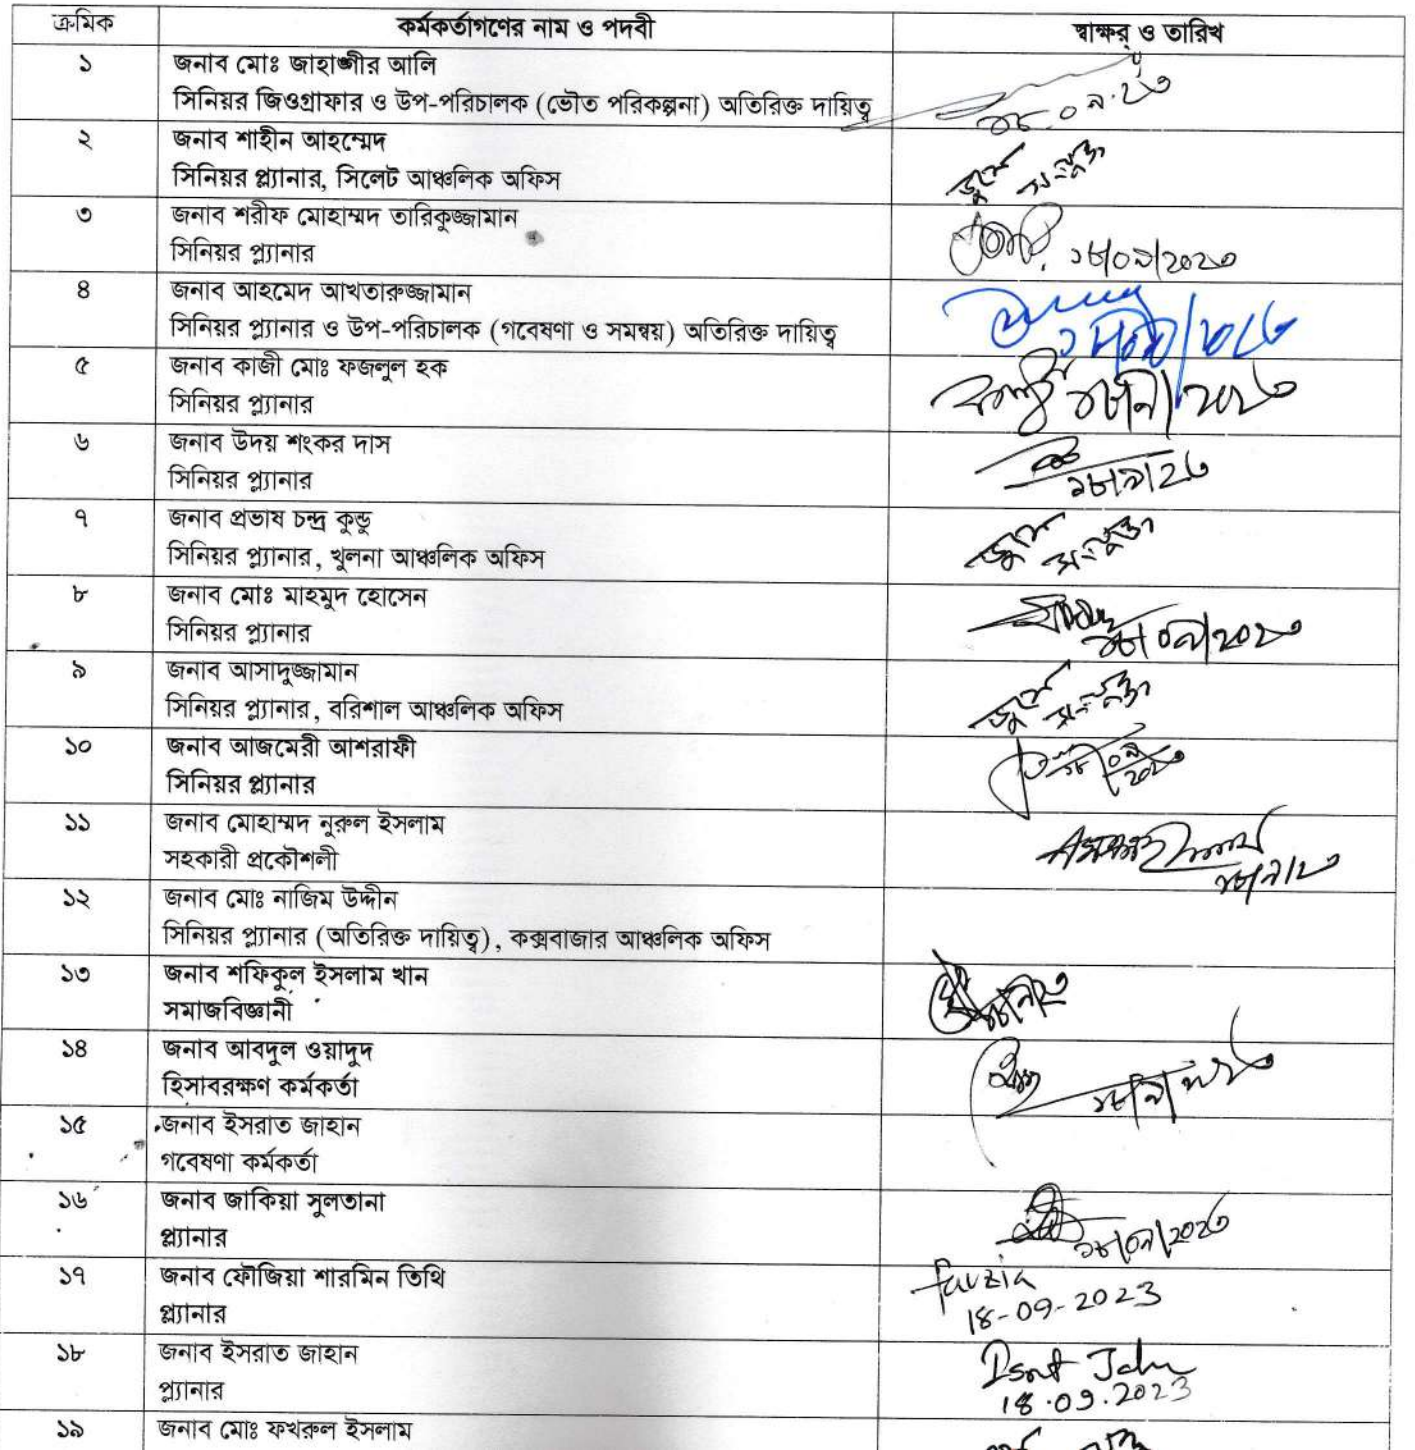 ক্রমিক কর্মকর্তাগণের নাম ও পদবী স্বাক্ষর ও তারিখ
১ জনাব মোঃ জাহাঙ্গীর আলি
সিনিয়র জিওগ্রাফার ও উপ-পরিচালক (ভৌত পরিকল্পনা) অতিরিক্ত দায়িত্ব
১৮.০৯.২৩
২ জনাব শাহীন আহম্মেদ
সিনিয়র প্ল্যানার, সিলেট আঞ্চলিক অফিস
জুমে সংযুক্ত
৩ জনাব শরীফ মোহাম্মদ তারিকুজ্জামান
সিনিয়র প্ল্যানার
১৮/০৯/২০২৩
৪ জনাব আহমেদ আখতারুজ্জামান
সিনিয়র প্ল্যানার ও উপ-পরিচালক (গবেষণা ও সমন্বয়) অতিরিক্ত দায়িত্ব
৫ জনাব কাজী মোঃ ফজলুল হক
সিনিয়র প্ল্যানার
১৮/৯/২০২৩
৬ জনাব উদয় শংকর দাস
সিনিয়র প্ল্যানার
১৮/৯/২৩
৭ জনাব প্রভাষ চন্দ্র কুন্ডু
সিনিয়র প্ল্যানার, খুলনা আঞ্চলিক অফিস
জুমে সংযুক্ত
৮ জনাব মোঃ মাহমুদ হোসেন
সিনিয়র প্ল্যানার
১৮/০৯/২০২৩
৯ জনাব আসাদুজ্জামান
সিনিয়র প্ল্যানার, বরিশাল আঞ্চলিক অফিস
জুমে সংযুক্ত
১০ জনাব আজমেরী আশরাফী
সিনিয়র প্ল্যানার
১৮/০৯/২০২৩
১১ জনাব মোহাম্মদ নুরুল ইসলাম
সহকারী প্রকৌশলী
১৮/৯/২৩
১২ জনাব মোঃ নাজিম উদ্দীন
সিনিয়র প্ল্যানার (অতিরিক্ত দায়িত্ব), কক্সবাজার আঞ্চলিক অফিস
১৩ জনাব শফিকুল ইসলাম খান
সমাজবিজ্ঞানী
১৪ জনাব আবদুল ওয়াদুদ
হিসাবরক্ষণ কর্মকর্তা
১৫ জনাব ইসরাত জাহান
গবেষণা কর্মকর্তা
১৬ জনাব জাকিয়া সুলতানা
প্ল্যানার
১৮/০৯/২০২৩
১৭ জনাব ফৌজিয়া শারমিন তিথি
প্ল্যানার
fauzia
18-09-2023
১৮ জনাব ইসরাত জাহান
প্ল্যানার
18.09.2023
১৯ জনাব মোঃ ফখরুল ইসলাম